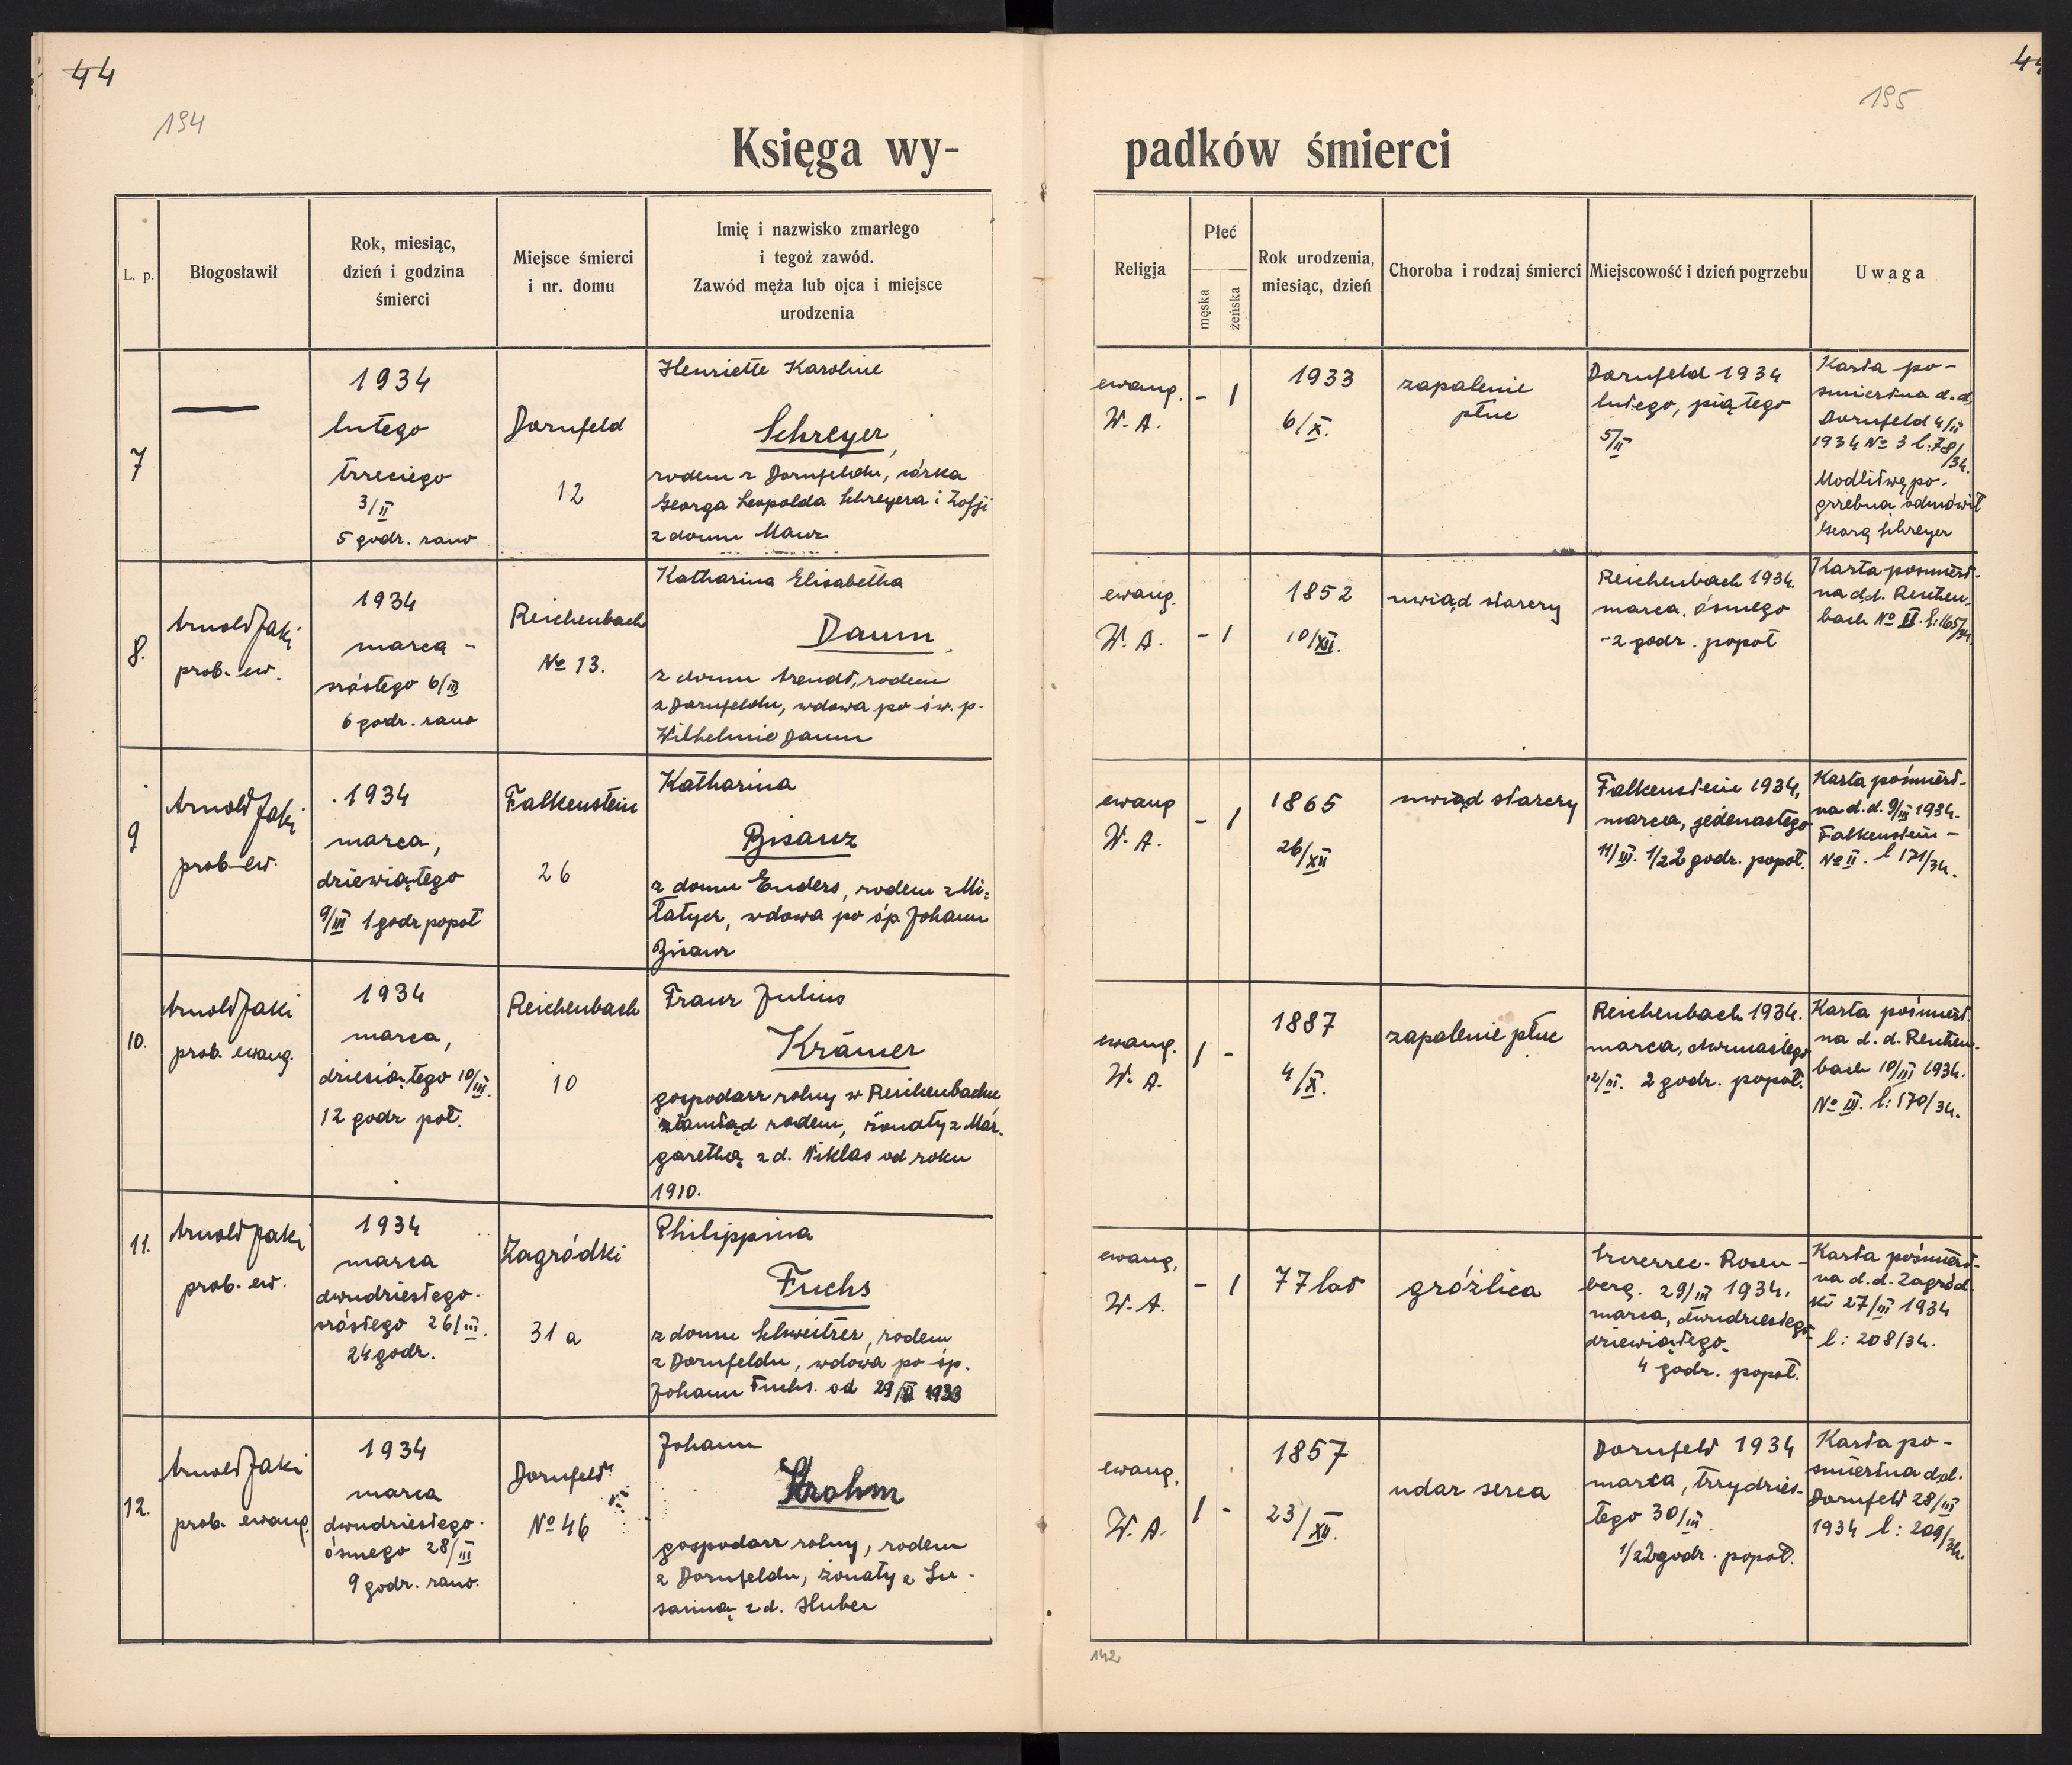 44
194
Księga wy-
L. p.
Błogosławił
Rok, miesiąc,
dzień i godzina
śmierci
Miejsce śmierci
i nr. domu
Imię i nazwisko zmarłego
i tegoż zawód.
Zawód męża lub ojca i miejsce
urodzenia
7
1934
lutego
trzeciego
3/II
5 godz. rano
Dornfeld
12
Henriette Karoline
Schreyer,
rodem z Dornfeldu, córka
Georga Leopolda Schreyera i Zofji
z domu Maur
8.
Arnold Jaki
prob. ew.
1934
marca -
szóstego 6/III
6 godz. rano
Reichenbach
№ 13.
Katharina Elisabetha
Daum,
z domu Arendt, rodem
z Dornfeldu, wdowa po św. p.
Wilhelmie Daum
9
Arnold Jaki
prob. ew.
1934
marca,
dziewiątego
9/III 1 godz popoł
Falkenstein
26
Katharina
Bisanz
z domu Enders, rodem z Mi-
łatycz, wdowa po śp. Johann
Bisanz
10.
Arnold Jaki
prob. ewang.
1934
marca,
dziesiątego 10/III.
12 godz poł.
Reichenbach
10
Franz Julius
Krämer
gospodarz rolny w Reichenbachu,
stamtąd rodem, żonaty z Mar-
garethą z d. Niklas od roku
1910.
11.
Arnold Jaki
prob. ew.
1934
marca
dwudziestego-
szóstego 26/III.
24 godz.
Zagródki
31 a
Philippina
Fuchs
z domu Schweitzer, rodem
z Dornfeldu, wdowa po śp.
Johann Fuchs. od 29/ 1933
12.
Arnold Jaki
prob. ewang.
1934
marca
dwudziestego-
ósmego 28/III
9 godz. rano.
Dornfeld
№ 46
Johann
Krohm
gospodarz rolny, rodem
z Dornfeldu, żonaty z Zu-
sanną z d. Huber
44
195
padków śmierci
Religja
Płeć
męska
żeńska
Rok urodzenia,
miesiąc, dzień
Choroba i rodzaj śmierci
Miejscowość i dzień pogrzebu
Uwaga
ewang.
W. A.
- 1
1933
6/X.
zapalenie
płuc
Dornfeld 1934
lutego, piątego
5/II
Karta po-
śmiertna d. d.
Dornfeld 4/II
1934 № 3 l: 78/
/34.
Modlitwę po-
grzebną odmówił
Georg Schreyer
ewang.
W. A.
- 1
1852
10/XII.
uwiąd starczy
Reichenbach 1934.
marca. ósmego
- 2 godz. popoł
Karta pośmiert-
na d.d. Reichen-
bach № II. l: 165/34.
ewang
W. A.
- 1
1865
26/XII
uwiąd starczy
Falkenstein 1934,
marca, jedenastego
11/III. 1/2 2 godz. popoł.
Karta pośmiert-
na d. d. 9/III 1934.
Falkenstein -
№ II. l 171/34.
ewang.
W. A.
1 -
1887
4/X.
zapalenie płuc
Reichenbach 1934.
marca, dwunastego
12/III. 2 godz. popoł.
Karta pośmiert.
na d. d. Reichen-
bach 10/III 1934.
№ III. l: 170/34.
ewang.
W. A.
- 1
77 lat
gróźlica
Szczerzec-Rosen-
berg. 29/III 1934.
marca, dwudziestego
dziewiątego.
4 godz. popoł.
Karta pośmiert-
na d. d. Zagród-
ki 27/III 1934
l: 208/34.
ewang.
W. A.
1 -
1857
23/XII.
udar serca
Dornfeld 1934
marca, trzydzies-
tego 30/III.
1/2 2 godz. popoł.
Karta po-
śmiertna d.d.
Dornfeld 28/III
1934 l: 209/34.
142